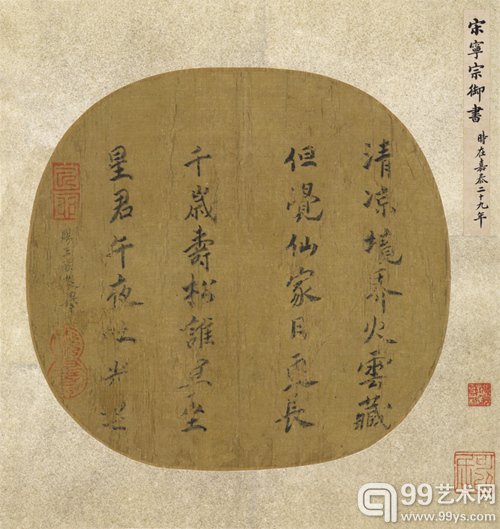 宋寧宗御書 時在嘉泰二十九年
清凉境界火雲藏
但覺仙家日更長
千歲壽松誰坐
星君午夜光
99艺术网
www.99ys.com